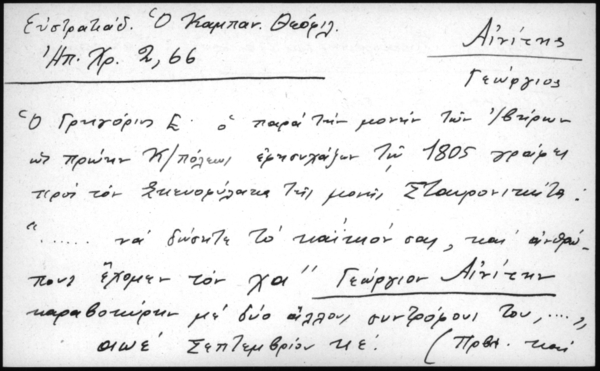 Εὐστρατιάδ. Ὁ Καμπαν. Θεόφιλ.
Ἠπ. Χρ. 2, 66
Αἰνίτης
Γεώργιος
Ὁ Γρηγόριος Ε΄ ὁ παρὰ τὴν μονὴν τῶν Ἰβήρων
ὡς πρώην Κ/πόλεως ἐφησυχάζων τῷ 1805 γράφει
πρὸς τὸν Σκευοφύλακα τῆς μονῆς Σταυρονικήτα:
"...... νὰ δώσητε τὸ καΐκιόν σας, καὶ ἀνθρώ-
πους ἔχομεν τὸν χα" Γεώργιον Αἰνίτην
καραβοκύρην μὲ δύο ἄλλους συντρόφους του, ....,,
αωε΄ Σεπτεμβρίου κε΄. (Πρβλ. καὶ